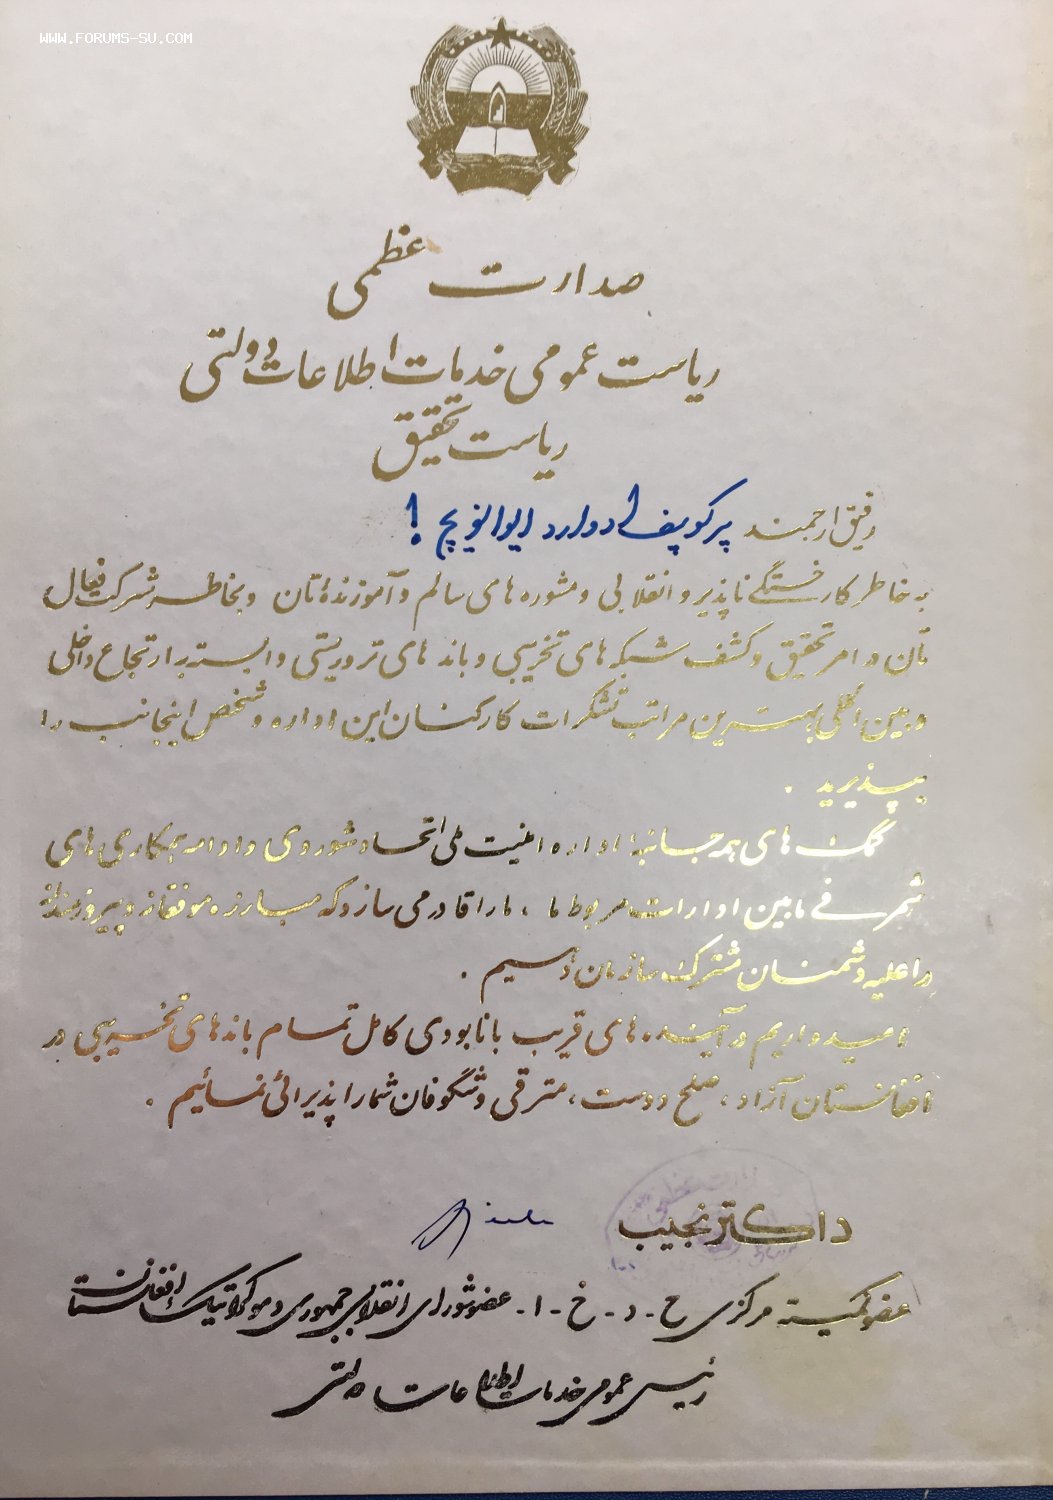 WWW.FORUMS-SU.COM
صدارت عظمی
ریاست عمومی خدمات اطلاعات دولتی
ریاست تحقیق
رفیق ارجمند پرکوپف ادوارد ایوانویچ !
به خاطر کار خستگی ناپذیر و انقلابی و مشوره های سالم و آموزندۀ تان و بخاطر شرکت فعال
تان در امر تحقیق و کشف شبکه های تخریبی و باند های تروریستی وابسته به ارتجاع داخلی
و بین المللی بهترین مراتب تشکرات کارکنان این اداره و شخص اینجانب را
بپذیرید .
کمک های همه جانبۀ اداره امنیت ملی اتحاد شوروی و ادامه همکاری های
ثمر بخش فی مابین ادارات مربوط ما ، ما را قادر می سازد که مبارزه موفقانه و پیروزمندانۀ
را علیه دشمنان مشترک سازمان دهیم .
امیدواریم در آینده های قریب با نابودی کامل تمام باندهای تخریبی در
افغانستان آزاد ، صلح دوست ، مترقی و شگوفان شما را پذیرائی نمائیم .
داکتر نجیب
عضو کمیته مرکزی ح - د - خ - ا - عضو شورای انقلابی جمهوری دموکراتیک افغانستان
رئیس عمومی خدمات اطلاعات دولتی